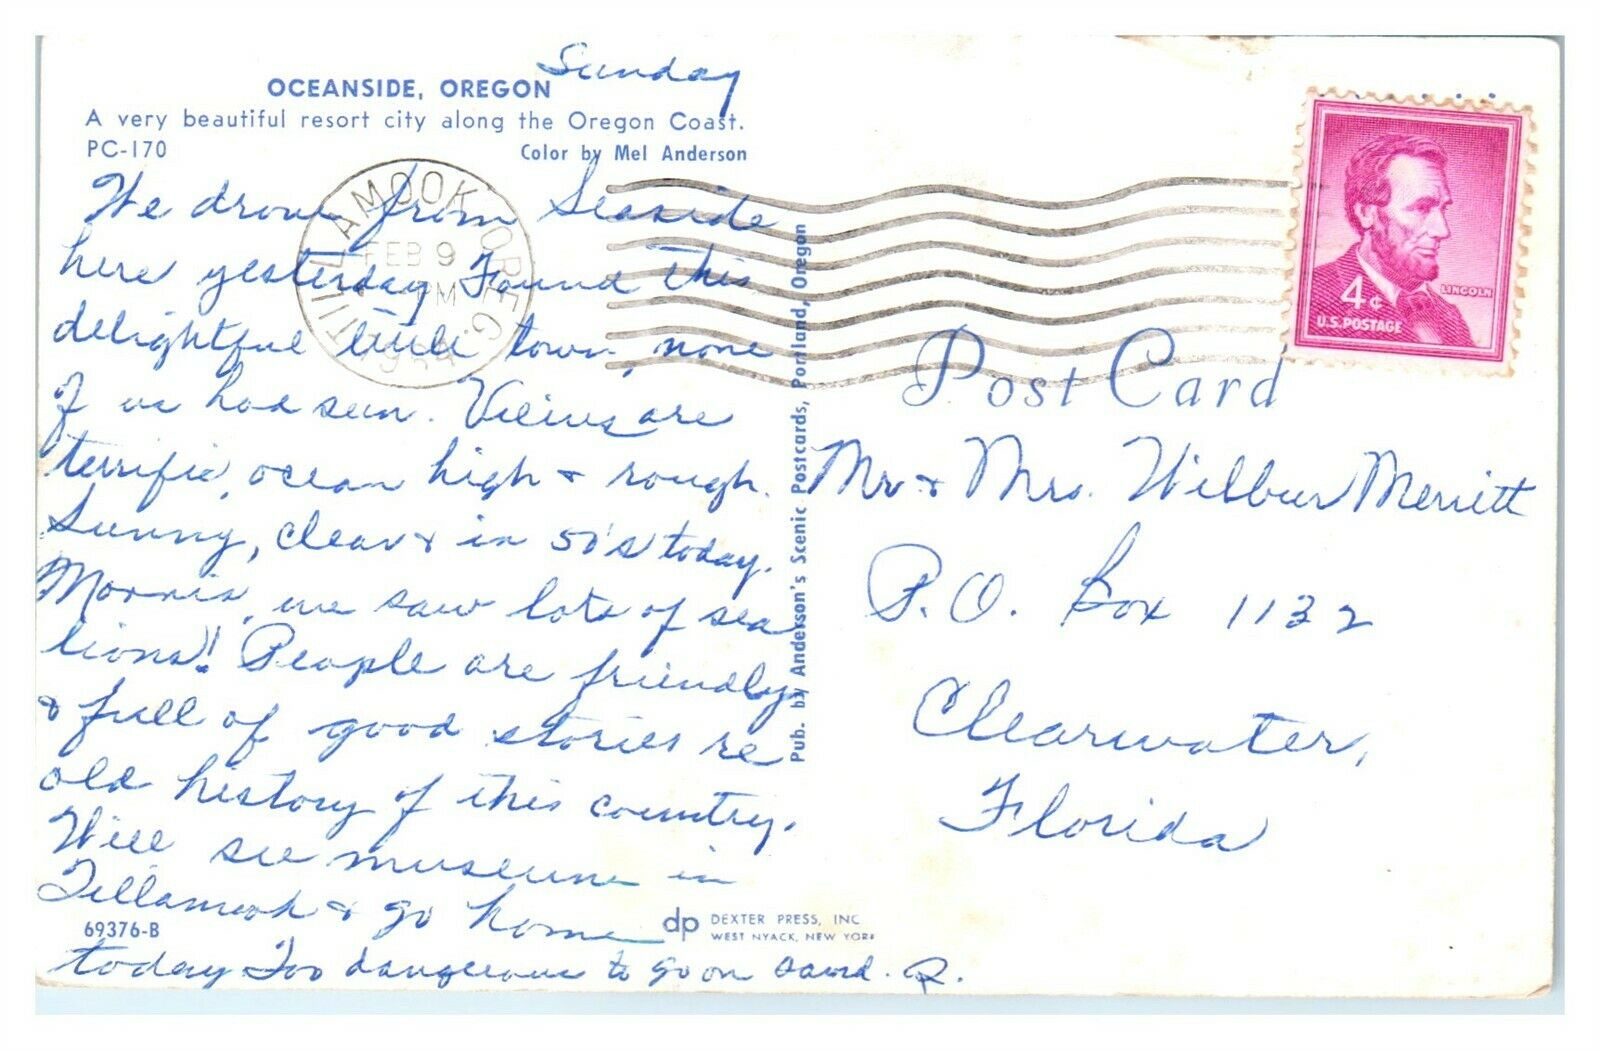 Sunday
OCEANSIDE, OREGON
A very beautiful resort city along the Oregon Coast.
PC-170
Color by Mel Anderson
We drove from Seaside
here yesterday Found this
delightful little town, none
of us had seen. Views are
terrific, ocean high & rough.
Sunny, clear & in 50's today.
Morris, we saw lots of sea
lions! People are friendly
& full of good stories re
old history of this country.
Will see museum in
Tillamook & go home
today Too dangerous to go on sand. R.
69376-B
dp DEXTER PRESS, INC
WEST NYACK, NEW YORK
TILLAMOOK OREG.
FEB 9
PM
Pub. by Anderson's Scenic Postcards, Portland, Oregon
4¢
LINCOLN
U.S. POSTAGE
Post Card
Mr & Mrs. Wilbur Merritt
P.O. Box 1132
Clearwater,
Florida